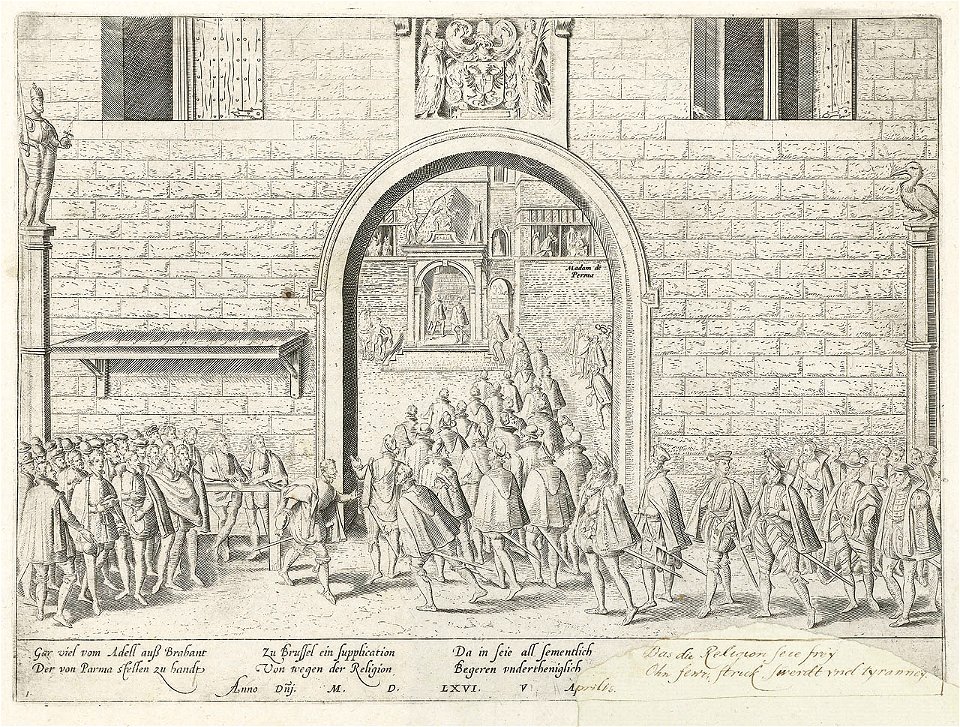 Madam de
Perma
Gar viel vom Adell auß Brabant
Der von Parma stellen zu handt
Zu Brussel ein supplication
Von wegen der Religion
Da in seie all sementlich
Begeren vndertheniglich
Das die Religion seie frÿ
Ohn fewr, strick swerdt vnd tyranneÿ
Anno Dnj. M. D. LXVI. V Aprilis.
1.